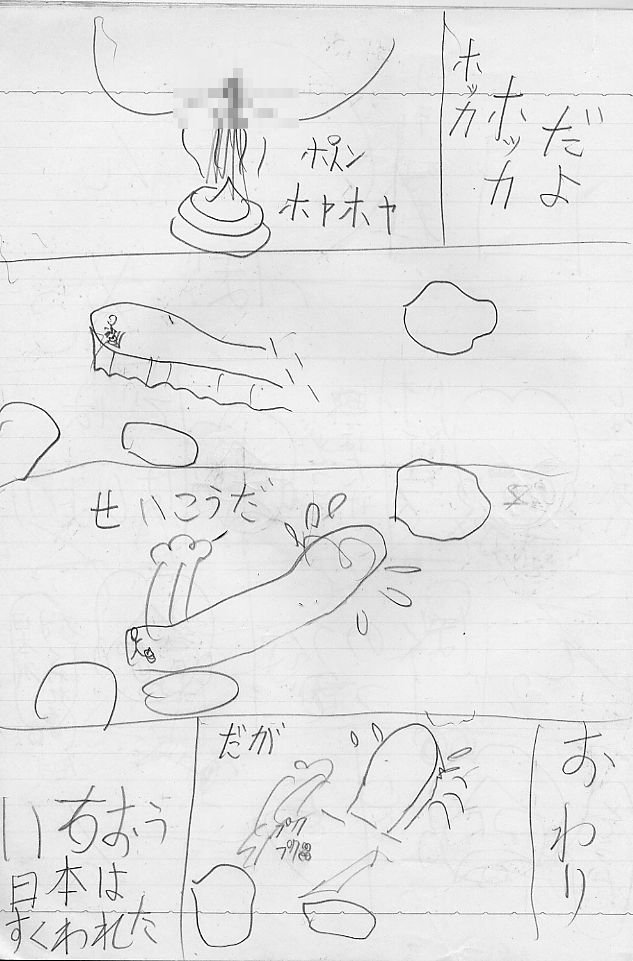 ホッカ
ホッカ
だよ
ポトン
ホヤホヤ
せいこうだ
おわり
だが
プク
プク
いちおう
日本は
すくわれた